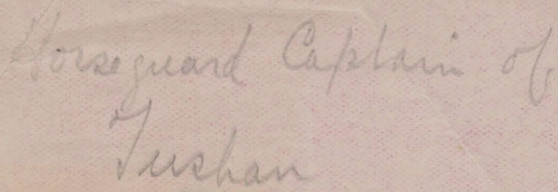 Horseguard Captain of
Tushan